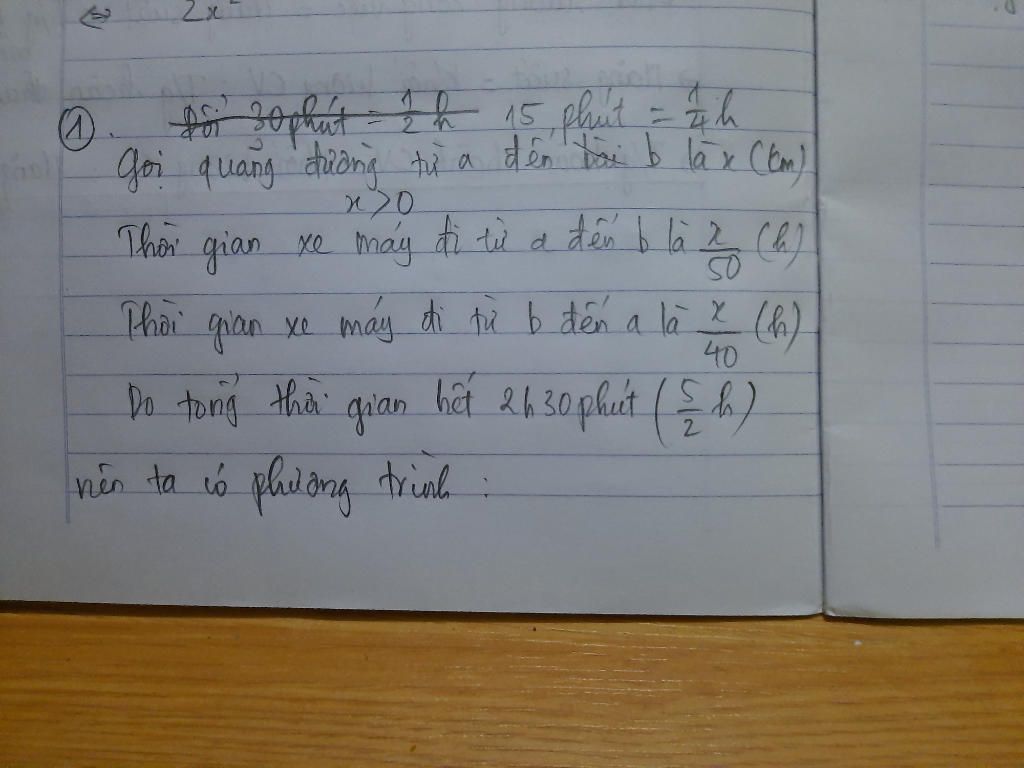 ⇔ 2x²
① . Đổi 30 phút = 1/2 h 15 phút = 1/4 h
Gọi quảng đường từ a đến bài b là x (km)
x > 0
Thời gian xe máy đi từ a đến b là x/50 (h)
Thời gian xe máy đi từ b đến a là x/40 (h)
Do tổng thời gian hết 2h30phút (5/2 h)
nên ta có phương trình :